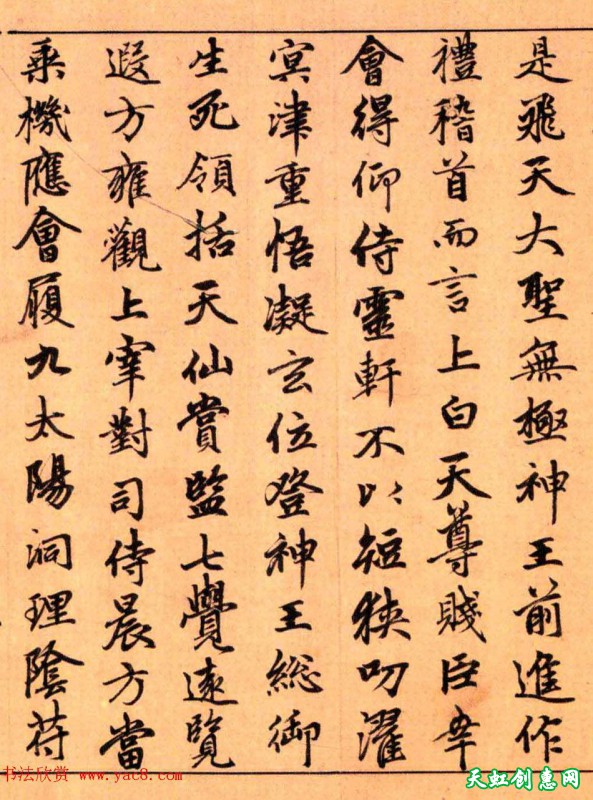 是飛天大聖無極神王前進作
禮稽首而言上白天尊賤臣幸
會得仰侍靈軒不以短狹叨濯
㝠津重悟凝玄位登神王総御
生死領括天仙賞監七覺遠覽
遐方雍觀上宰對司侍晨方當
乗機應會履九太陽洞理陰苻
书法欣赏 www.yac8.com
天虹创惠网